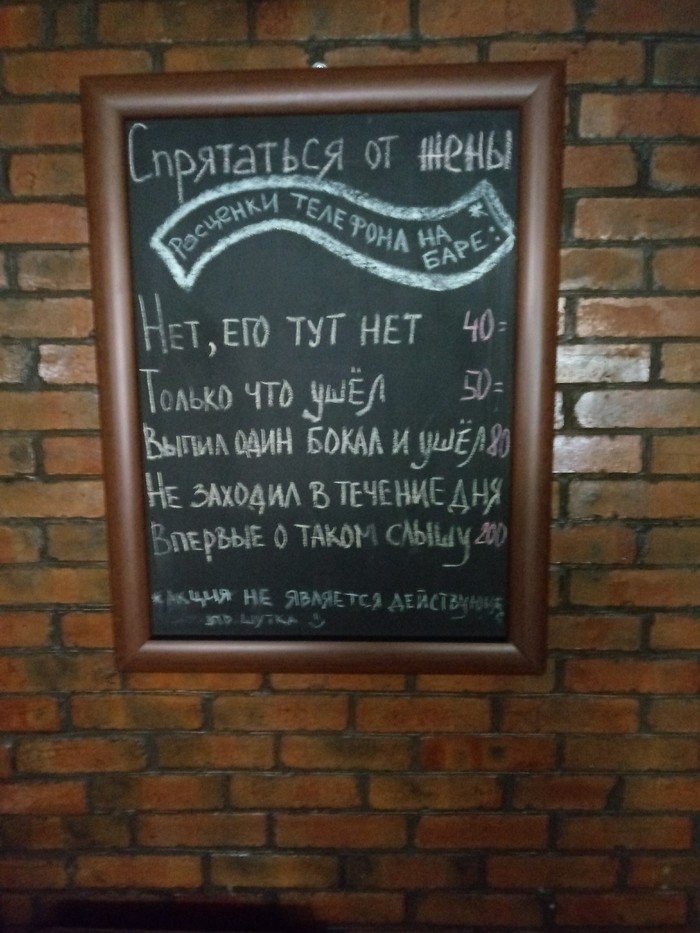 Спрятаться от жены
Расценки телефона на баре:*
Нет, его тут нет 40=
Только что ушёл 50=
Выпил один бокал и ушёл 80
Не заходил в течение дня
Впервые о таком слышу 200
*акция не является действующей
это шутка